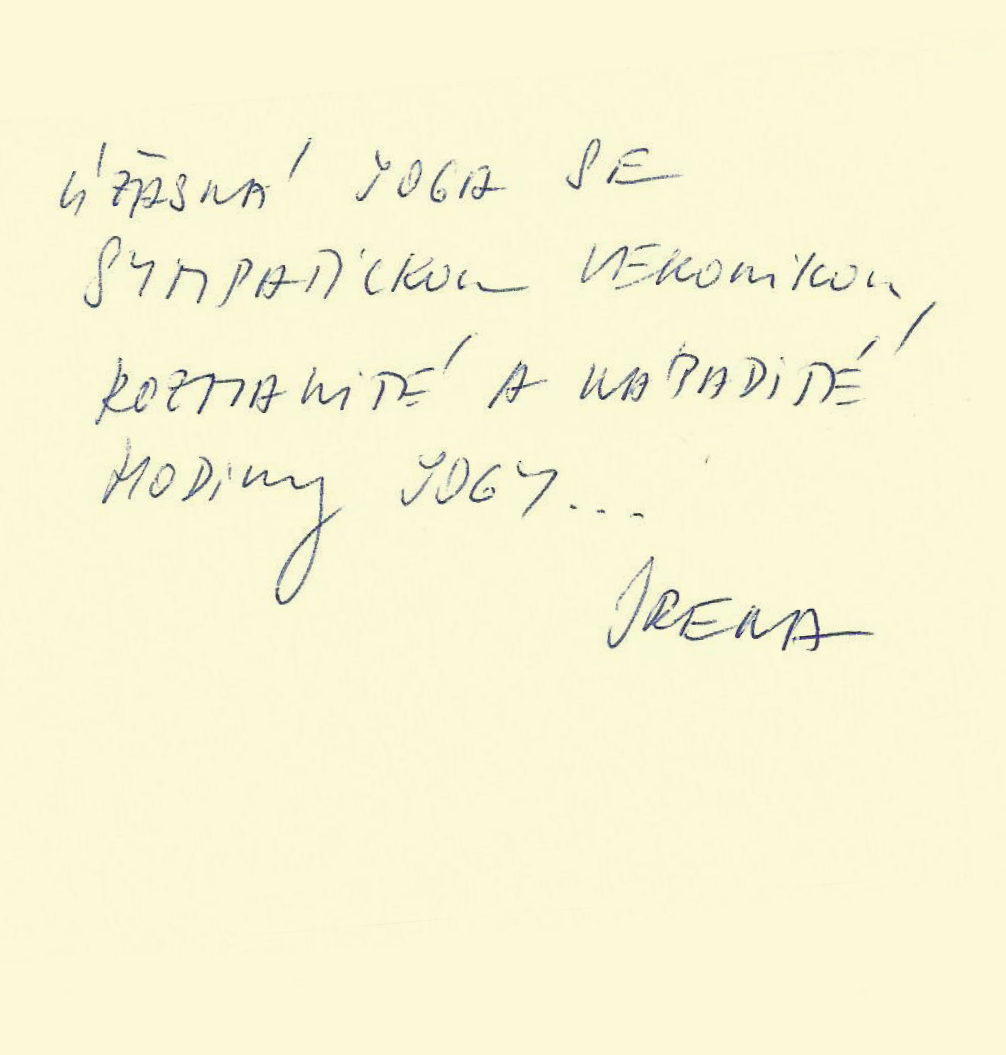 ÚŽASNÁ JOGA SE
SYMPATICKOU VERONIKOU,
ROZMANITÉ A NÁPADITÉ
HODINY JOGY...
IRENA